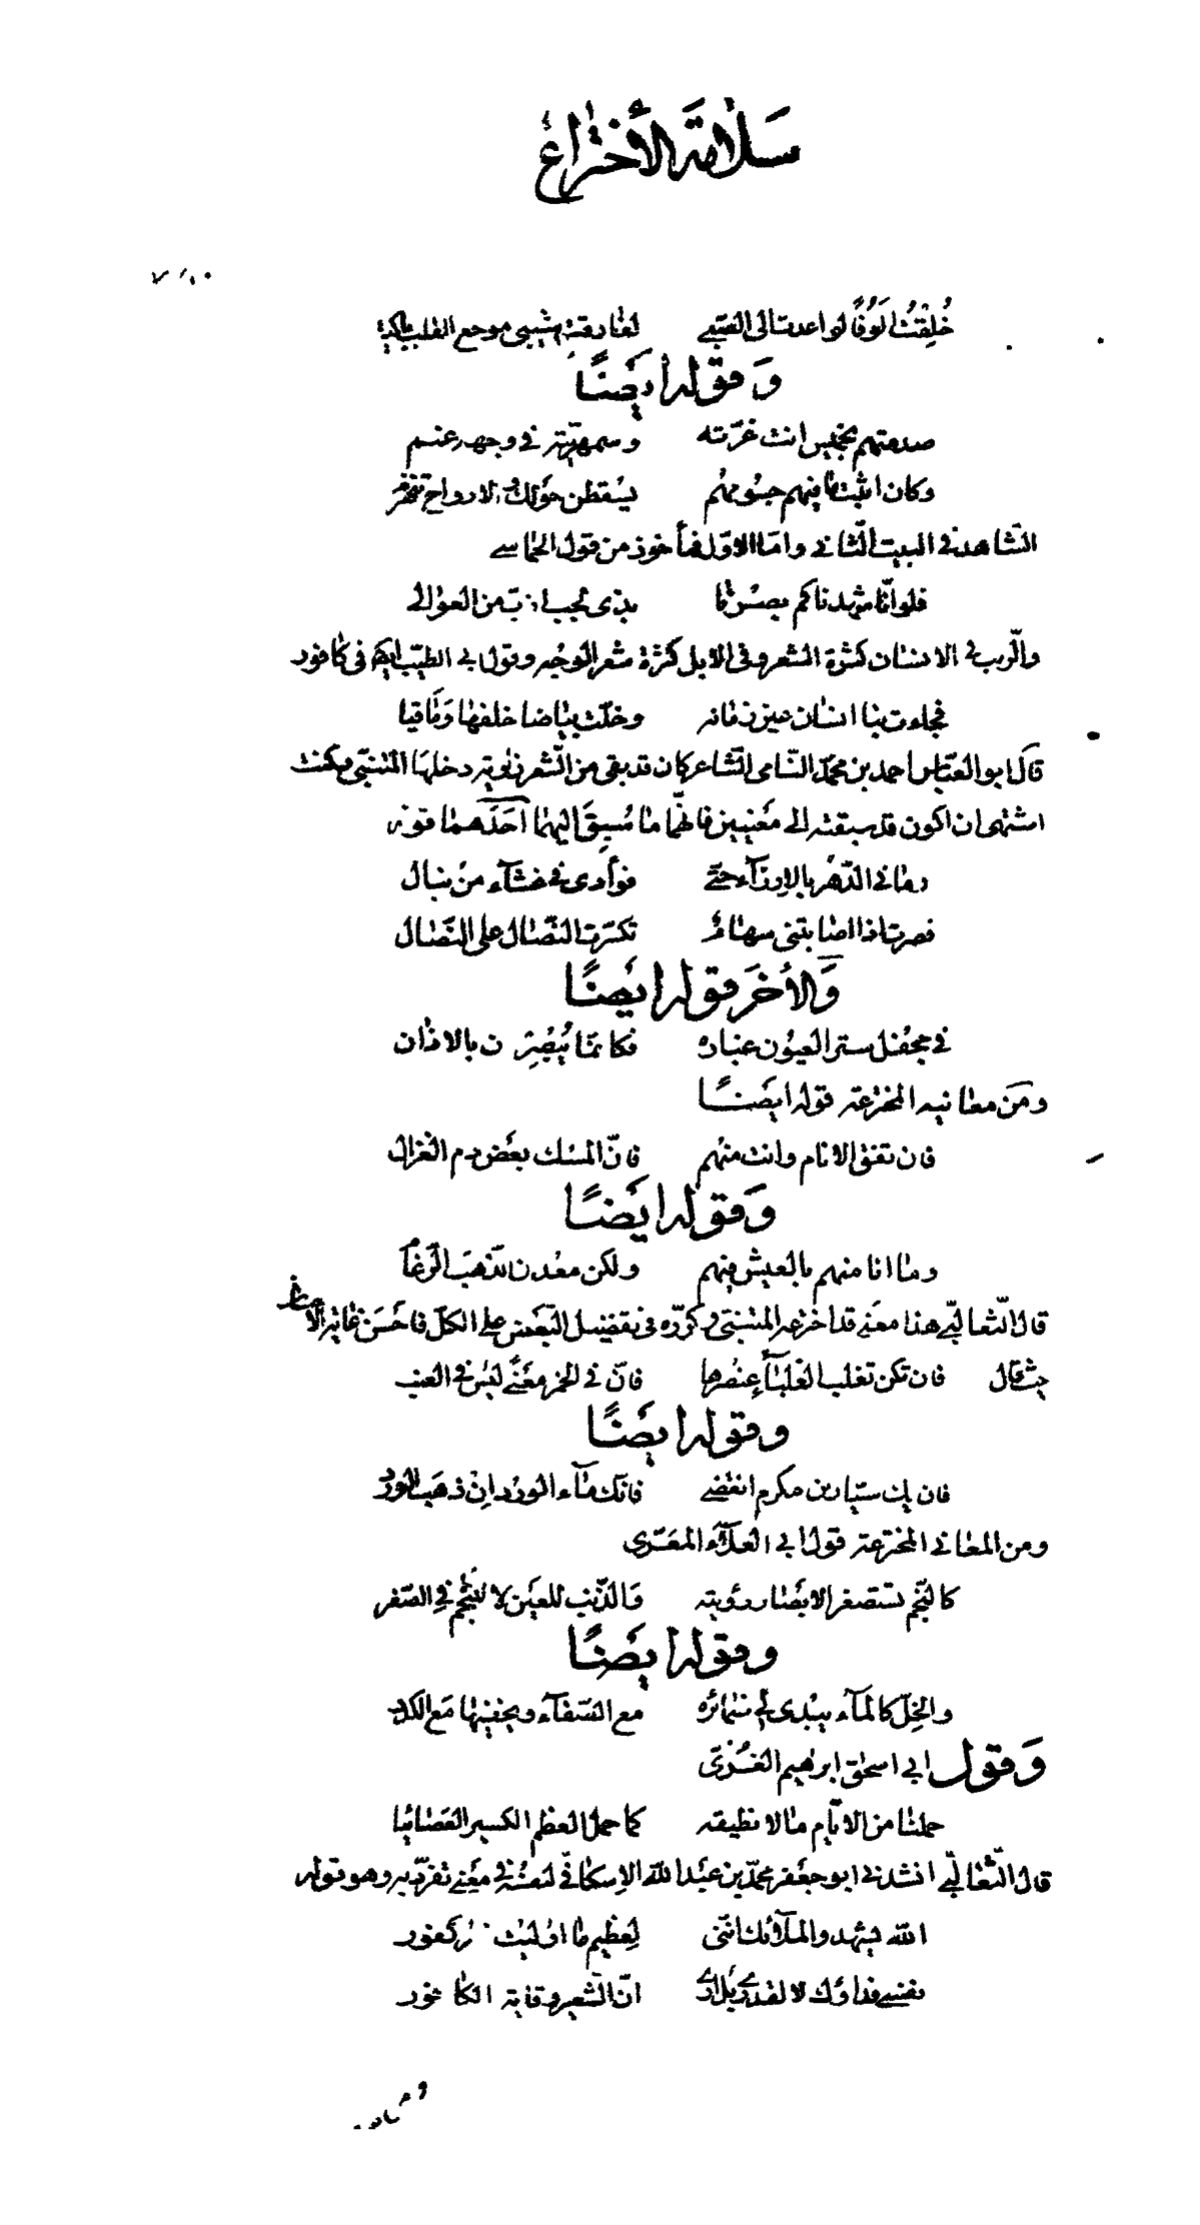 سَلامَة الأختراع
خُلِقْتُ ألوفًا لو اعدت الى الصبى لفارقت شيبى موجع القلب باكيا
وَقوله ايضًا
صدمتهم بخميس انت غرّته وسمهريّته فى وجهه غمم
وكان اثبت ما فيهم جسومهم يسقطن حولك والارواح تنهزم
الشّاهد فى البيت الثّانى وامّا الاوّل فمأخوذ من قول الحماسى
فلو انّا شهدناكم نصرنا بذى لجب ازبّ من العوالى
والزّبب فى الانسان كثرة الشعر وفى الابل كثرة شعر الوجه وقول ابى الطيّب ايضا فى كافور
فجاءت بنا انسان عين زمانه وخلّت بياضا خلفها وَمآقيا
قال ابو العبّاس احمد بن محمّد النّامى الشّاعر كان قد بقى من الشّعر زاوية دخلها المتنبّى وكنت
اشتهى ان اكون قد سبقته الى مَعنيين قالهما مَا سُبِقَ اليهما أحَدهما قوله
رمانى الدّهر بالارزآء حتّى فوأدى فى غشآء من نبال
فصرت اذا اصابتنى سهام تكسّرت النّصال على النّصال
وَالأخر قوله ايضًا
فى جحفل ستر العيون غباره فكانّما يُبْصِرْن بالاذان
ومن معانيه المخترعة قوله ايضًا
فان تفق الانام وانت منهم فانّ المسك بعض دم الغزال
وَقوله ايضًا
وما انا منهم بالعيش فيهم ولكن معدن الذّهب الرّغام
قال الثّعالبى هذا معنى قد اخترعه المتنبّى وكرّره فى تفضيل البَعض على الكلّ فاحسَن غاية الاحسان
حيث قال فان تكن تغلب الغلبآء عنصرها فانّ فى الخمر معنًى ليس فى العنب
وقوله ايضًا
فان يك سيّار بن مكرم انقضى فانّك مآء الورد ان ذهَب الورد
ومن المعانى المخترعة قول ابى العلآء المعَرّى
كالنّجم تستصغر الابصار رؤيته وَالذّنب للعين لا للنّجم فى الصّغر
وقوله ايضًا
والخِلّ كالمآء يبدى لى ضمائره مع الصّفآء ويخفيها مَع الكدر
وَقول ابى اسحٰق ابرهيم الغَزّى
حملنا من الايّام ما لا نطيقه كما حمل العظم الكسير العصائبا
قال الثّعالبى انشدنى ابو جعفر محمّد بن عبد الله الاسكافى لنفسه فى معنى تفرّد به وهو قوله
الله يشهد والملآئك انّنى لعظيم ما اوليت كفور
نفسى فداؤك لا لقدرى بل ارى انّ الشّعير وقاية الكافور